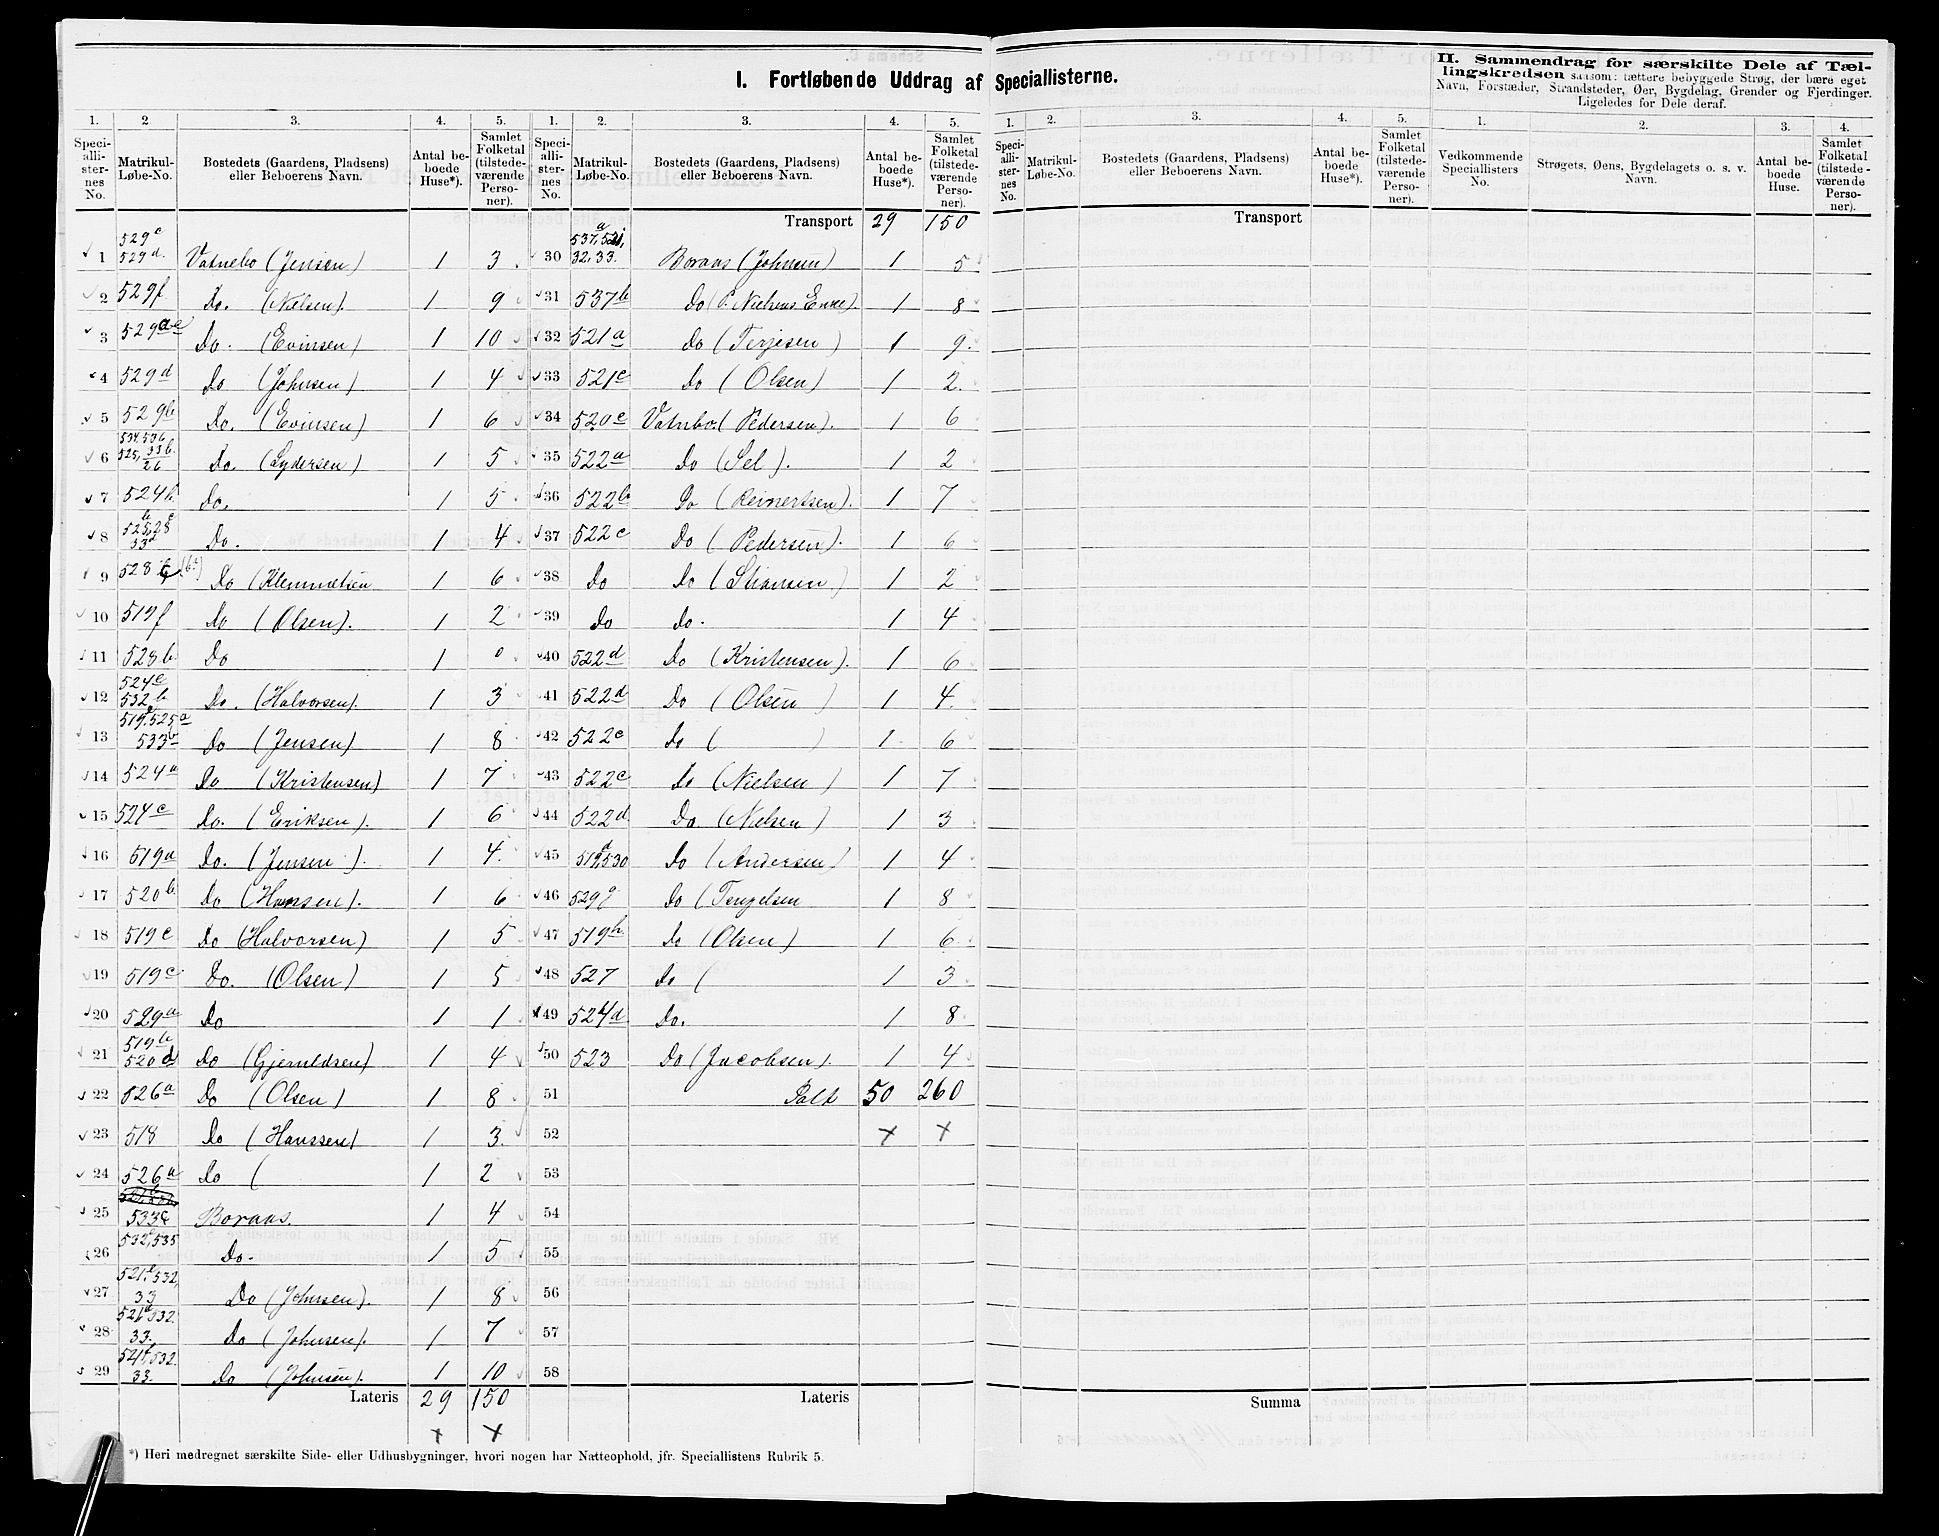 I. Fortløbende Uddrag af Speciallisterne.
II. Sammendrag for særskilte Dele af Tællingskredsen saasom: tættere bebyggede Strøg, der bære eget Navn, Forstæder, Strandsteder, Øer, Bygdelag, Grender og Fjerdinger. Ligeledes for Dele deraf.
1. 2. 3. 4. 5. 1. 2. 3. 4. 5.
Speciallisternes No. Matrikul-Løbe-No. Bostedets (Gaardens, Pladsens) eller Beboerens Navn. Antal beboede Huse*). Samlet Folketal (tilstedeværende Personer).
Speciallisternes No. Matrikul-Løbe-No. Bostedets (Gaardens, Pladsens) eller Beboerens Navn. Antal beboede Huse*). Samlet Folketal (tilstedeværende Personer).
1 529c 529d. Vatnebo (Jensen) 1 3.
2 529f Do. (Nielsen). 1 9
3 529ae Do. (Evinsen) 1 10
4 529d Do (Johnsen) 1 4
5 529b Do. (Evinsen) 1 6
6 534,536 525, 33b. 26 Do. (Lydersen) 1 5
7 524b Do. 1 5
8 525b,28c 33d Do. 1 4
9 528 Do (Klemmetsen 1 6
10 519f Do (Olsen). 1 2
11 528b. Do 1 0
12 524e 532b Do. (Halvorsen). 1 3
13 519, 525a 533b Do (Jensen) 1 8
14 524a Do (Kristensen) 1 7
15 524c Do. (Eriksen). 1 6
16 519a Do. (Jensen). 1 4.
17 520b. Do (Hansen). 1 6
18 519e Do (Halvorsen) 1 5
19 519c Do. (Olsen) 1 5
20 529a Do 1 1
21 519b 520d Do (Gjeruldsen) 1 4
22 526a Do (Olsen) 1 8
23 518 Do (Hanssen) 1 3.
24 526a Do ( 1 2
25 533c Boraas. 1 4
26 532, 535 Do. 1 5
27 521, 532, 33 Do (Johnsen). 1 8
28 521, 532. 33. Do (Johnsen). 1 7
29 521, 532. 33. Do (Johnsen). 1 10
Lateris 29 150
Transport 29 150
30 537a, 521, 32, 33. Boraas (Johnsen) 1 5
31 537b Do (P. Nielsens Enke). 1 8
32 521a Do (Terjesen) 1 9.
33 521c Do (Olsen) 1 2.
34 520c Vatnbo. (Pedersen). 1 6
35 522a Do (Sel). 1 2
36 522b Do (Reinertsen). 1 7
37 522c Do (Pedersen). 1 6
38 Do Do (Stiansen) 1 2
39 Do Do. 1 4
40 522d Do (Kristensen). 1 6
41 522d Do (Olsen) 1 4.
42 522c Do ( ) 1. 6
43 522c Do (Nielsen) 1 7
44 522d Do (Nielsen) 1 3
45 519d, 530 Do (Andersen) 1 4
46 529g Do (Tengelsen 1 8
47 519h Do (Olsen) 1 6
48 527 Do ( 1 3
49 524d Do. 1 8
50 523 Do (Jacobsen). 1 4
51 Ialt 50 260
52 × ×
53
54
55
56
57
58
Lateris
× ×
*) Heri medregnet særskilte Side- eller Udhusbygninger, hvori nogen har Natteophold, jfr. Speciallistens Rubrik 5.
1. 2. 3. 4. 5.
Speciallisternes No. Matrikul-Løbe-No. Bostedets (Gaardens, Pladsens) eller Beboerens Navn. Antal beboede Huse*). Samlet Folketal (tilstedeværende Personer).
Transport
Summa
1. 2. 3. 4.
Vedkommende Speciallisters No. Strøgets, Øens, Bygdelagets o. s. v. Navn. Antal beboede Huse. Samlet Folketal (tilstedeværende Personer).